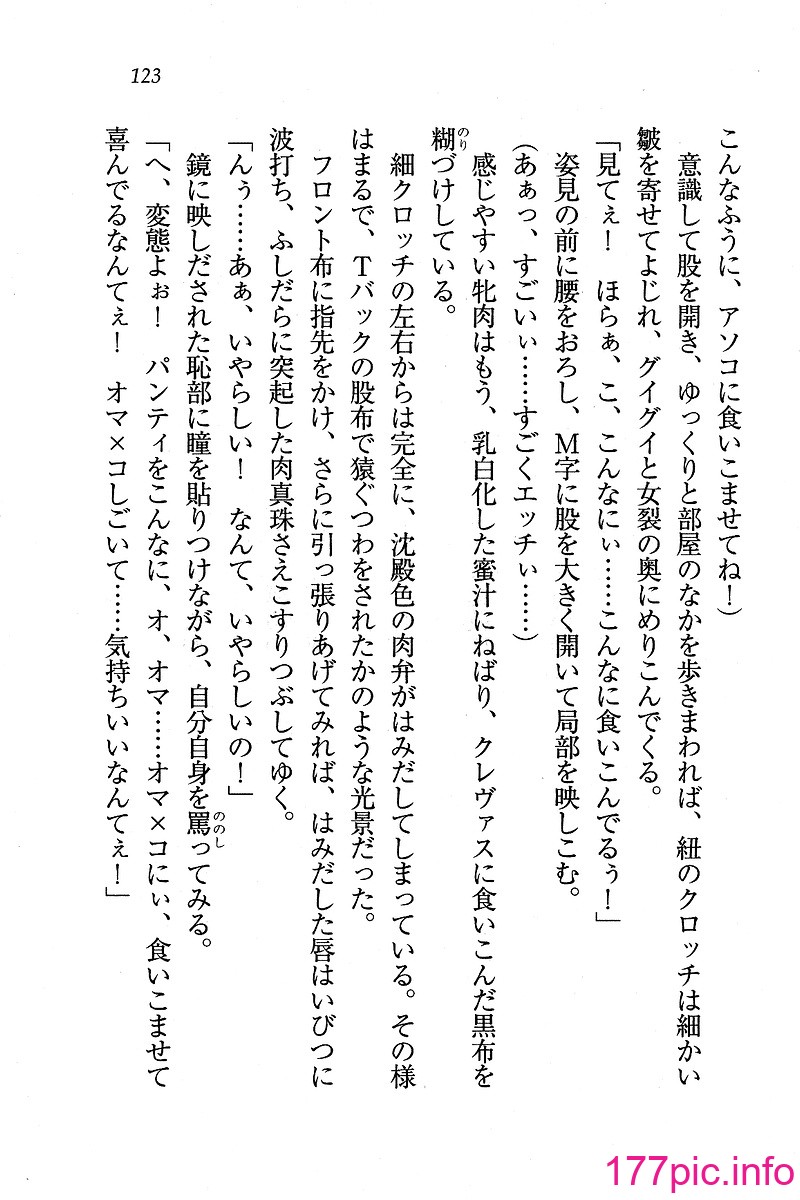 123
こんなふうに、アソコに食いこませてね！）
意識して股を開き、ゆっくりと部屋のなかを歩きまわれば、紐のクロッチは細かい
皺を寄せてよじれ、グイグイと女裂の奥にめりこんでくる。
「見てぇ！　ほらぁ、こ、こんなにぃ……こんなに食いこんでるぅ！」
姿見の前に腰をおろし、Ｍ字に股を大きく開いて局部を映しこむ。
（あぁっ、すごいぃ……すごくエッチぃ……）
感じやすい牝肉はもう、乳白化した蜜汁にねばり、クレヴァスに食いこんだ黒布を
糊づけしている。
細クロッチの左右からは完全に、沈殿色の肉弁がはみだしてしまっている。その様
はまるで、Ｔバックの股布で猿ぐつわをされたかのような光景だった。
フロント布に指先をかけ、さらに引っ張りあげてみれば、はみだした唇はいびつに
波打ち、ふしだらに突起した肉真珠さえこすりつぶしてゆく。
「んぅ……あぁ、いやらしい！　なんて、いやらしいの！」
鏡に映しだされた恥部に瞳を貼りつけながら、自分自身を罵ってみる。
「へ、変態よぉ！　パンティをこんなに、オ、オマ……オマ×コにぃ、食いこませて
喜んでるなんてぇ！　オマ×コしごいて……気持ちいいなんてぇ！」
177pic.info